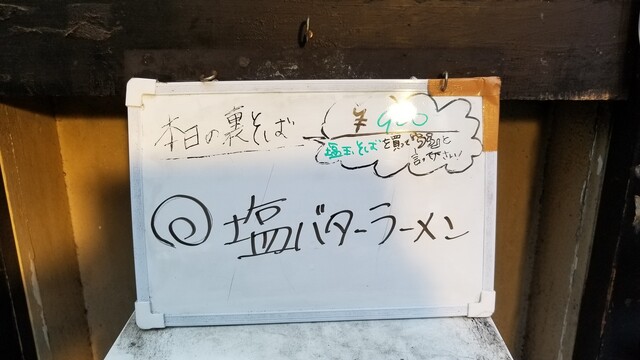 本日の裏そば
¥900
塩玉そばを買って
と
言って下さい!
塩バターラーメン